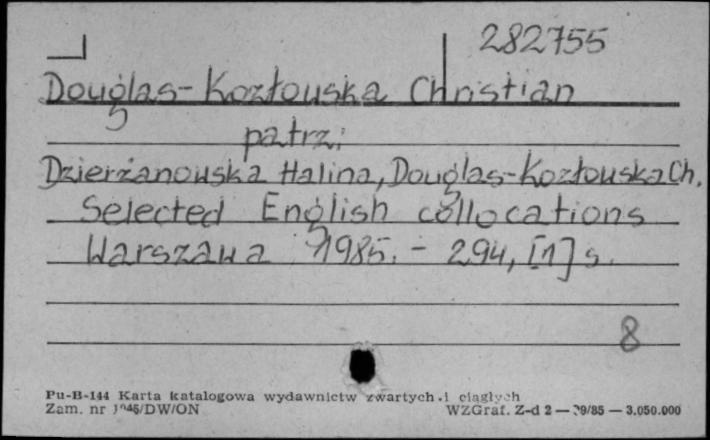 282755
Douglas-Kozłowska Christian
patrz:
Dzierżanowska Halina, Douglas-Kozłowska Ch.
Selected English collocations
Warszawa 1985. - 294, [1] s.
8
Pu-B-144 Karta katalogowa wydawnictw zwartych i ciągłych
Zam. nr /DW/ON WZGraf. Z-d 2 — 9/85 — 3.050.000